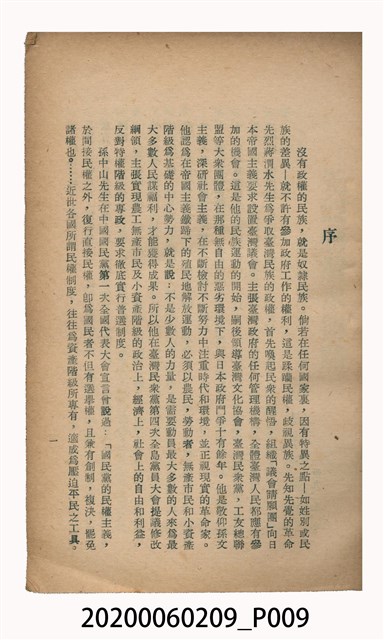 序
沒有政權的民族，就是奴隸民族。倘若在任何國家裏，因有特異之點—如姓別或民
族的差異—就不許有參加政府工作的權利，這是蹂躪民權，歧視異族。先知先覺的革命
先烈蔣渭水先生為爭取臺灣民族的政權，首先喚起民衆的醒悟，組織「議會請願團」向日
本帝國主義要求設置臺灣議會。主張臺灣政府的任何管理機構，全體臺灣人民都應有參
加的機會。這是他的民族運動的開始，嗣後領導臺灣文化協會，臺灣民衆黨，工友總聯
盟等大衆團體，在那種無自由的惡劣環境下，與日本政府鬥爭十有餘年。他是敬仰孫文
主義，深研社會主義，在不斷檢討不斷努力中注重時代和環境，並正視現實的革命家。
他認為在帝國主義鐵蹄下的殖民地解放運動，必須以農民，勞動者，無產市民和小資產
階級為基礎的中心勢力，就是說：不是少數人的力量，是需要動員最大多數的人來為最
大多數人民謀福利，才能獲得成果。所以他在臺灣民衆黨第四次全島黨員大會提議修改
綱領，主張實現農工無產市民及小資產階級的政治上，經濟上，社會上的自由和利益，
反對特權階級的專政，要求徹底實行普選制度。
孫中山先生在中國國民黨第一次全國代表大會宣言曾說過：「國民黨的民權主義，
於間接民權之外，復行直接民權，卽為國民者不但有選舉權，且兼有創制，複決，罷免
諸權也。……近世各國所謂民權制度，往往為資產階級所專有，適成為壓迫平民之工具。
一
20200060209_P009